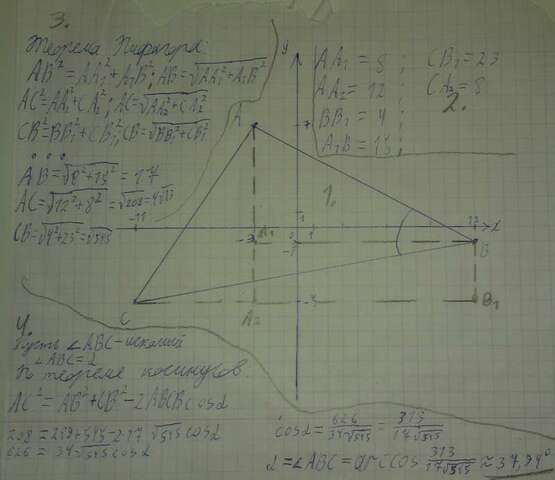 3.
Теорема Пифагора:
AB² = AA₁² + A₁B²; AB = √AA₁² + A₁B²
AC² = AA₂² + CA₂²; AC = √AA₂² + CA₂²
CB² = BB₁² + CB₁²; CB = √BB₁² + CB₁²
AB = √8² + 15² = 17
AC = √12² + 8² = √208 = 4√13
CB = √4² + 23² = √545
AA₁ = 8 ; CB₁ = 23
AA₂ = 12 ; CA₂ = 8
BB₁ = 4 ;
A₁B = 15 ;
2.
y
A
7
1.
1
-11
-3
A₁
0
1
-1
12
x
B
C
A₂
B₁
4.
Пусть ∠ABC - искомый
∠ABC = α
По теореме косинусов
AC² = AB² + CB² - 2ABCB cosα
208 = 289 + 545 - 2·17 √545 cosα
626 = 34√545 cosα
cosα = 626/34√545 = 313/17√545
α = ∠ABC = arccos 313/17√545 ≈ 37,94°